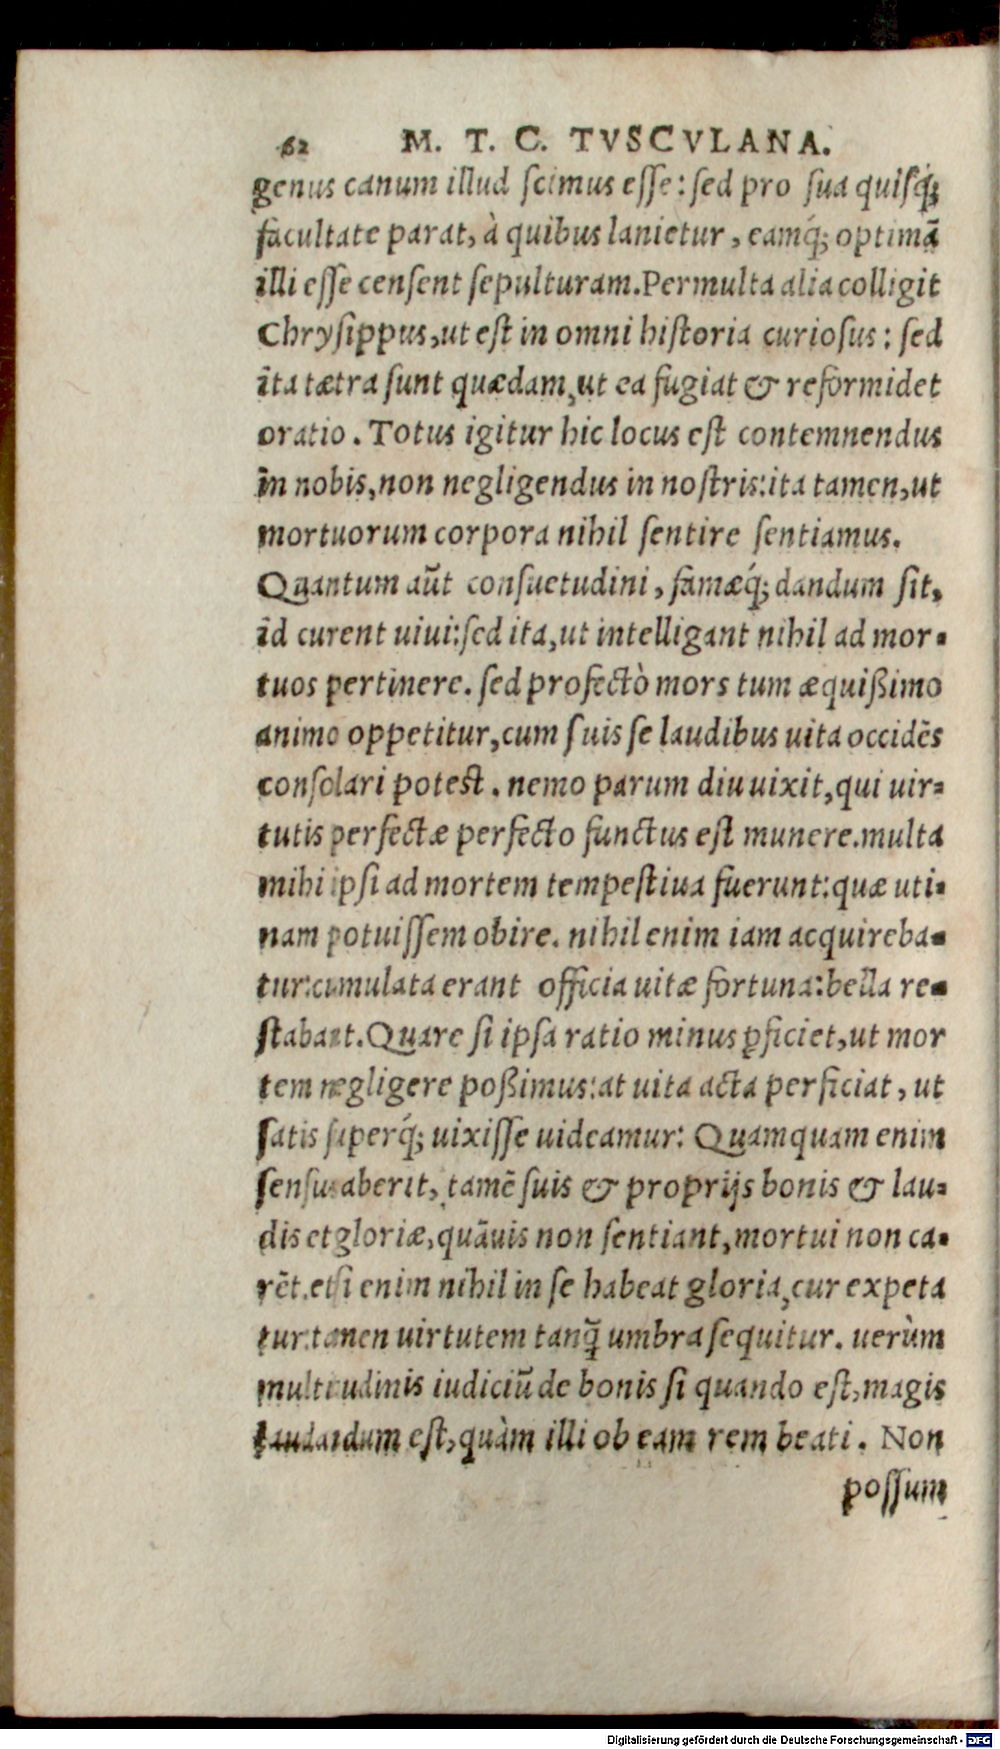 62 M. T. C. TVSCVLANA.
genus canum illud scimus esse: sed pro sua quisq́;
facultate parat, à quibus lanietur, eamq́; optimã
illi esse censent sepulturam. Permulta alia colligit
Chrysippus, ut est in omni historia curiosus: sed
ita tætra sunt quædam, ut ea fugiat & reformidet
oratio. Totus igitur hic locus est contemnendus
in nobis, non negligendus in nostris: ita tamen, ut
mortuorum corpora nihil sentire sentiamus.
Quantum aũt consuetudini, famæq́; dandum sit,
id curent uiui: sed ita, ut intelligant nihil ad mor-
tuos pertinere. sed profectò mors tum æquißimo
animo oppetitur, cum suis se laudibus uita occidẽs
consolari potest. nemo parum diu uixit, qui uir-
tutis perfectæ perfecto functus est munere. multa
mihi ipsi ad mortem tempestiua fuerunt: quæ uti-
nam potuissem obire. nihil enim iam acquireba-
tur: cumulata erant officia uitæ fortuna: bella re-
stabant. Quare si ipsa ratio minus ꝑficiet, ut mor
tem negligere poßimus: at uita acta perficiat, ut
satis superq́; uixisse uideamur: Quamquam enim
sensus aberit, tamẽ suis & proprijs bonis & lau-
dis et gloriæ, quãuis non sentiant, mortui non ca-
rẽt. etsi enim nihil in se habeat gloria, cur expeta
tur: tamen uirtutem tanq̃ umbra sequitur. uerùm
multitudinis iudiciũ de bonis si quando est, magis
laudandum est, quàm illi ob eam rem beati. Non
possum
Digitalisierung gefördert durch die Deutsche Forschungsgemeinschaft - DFG